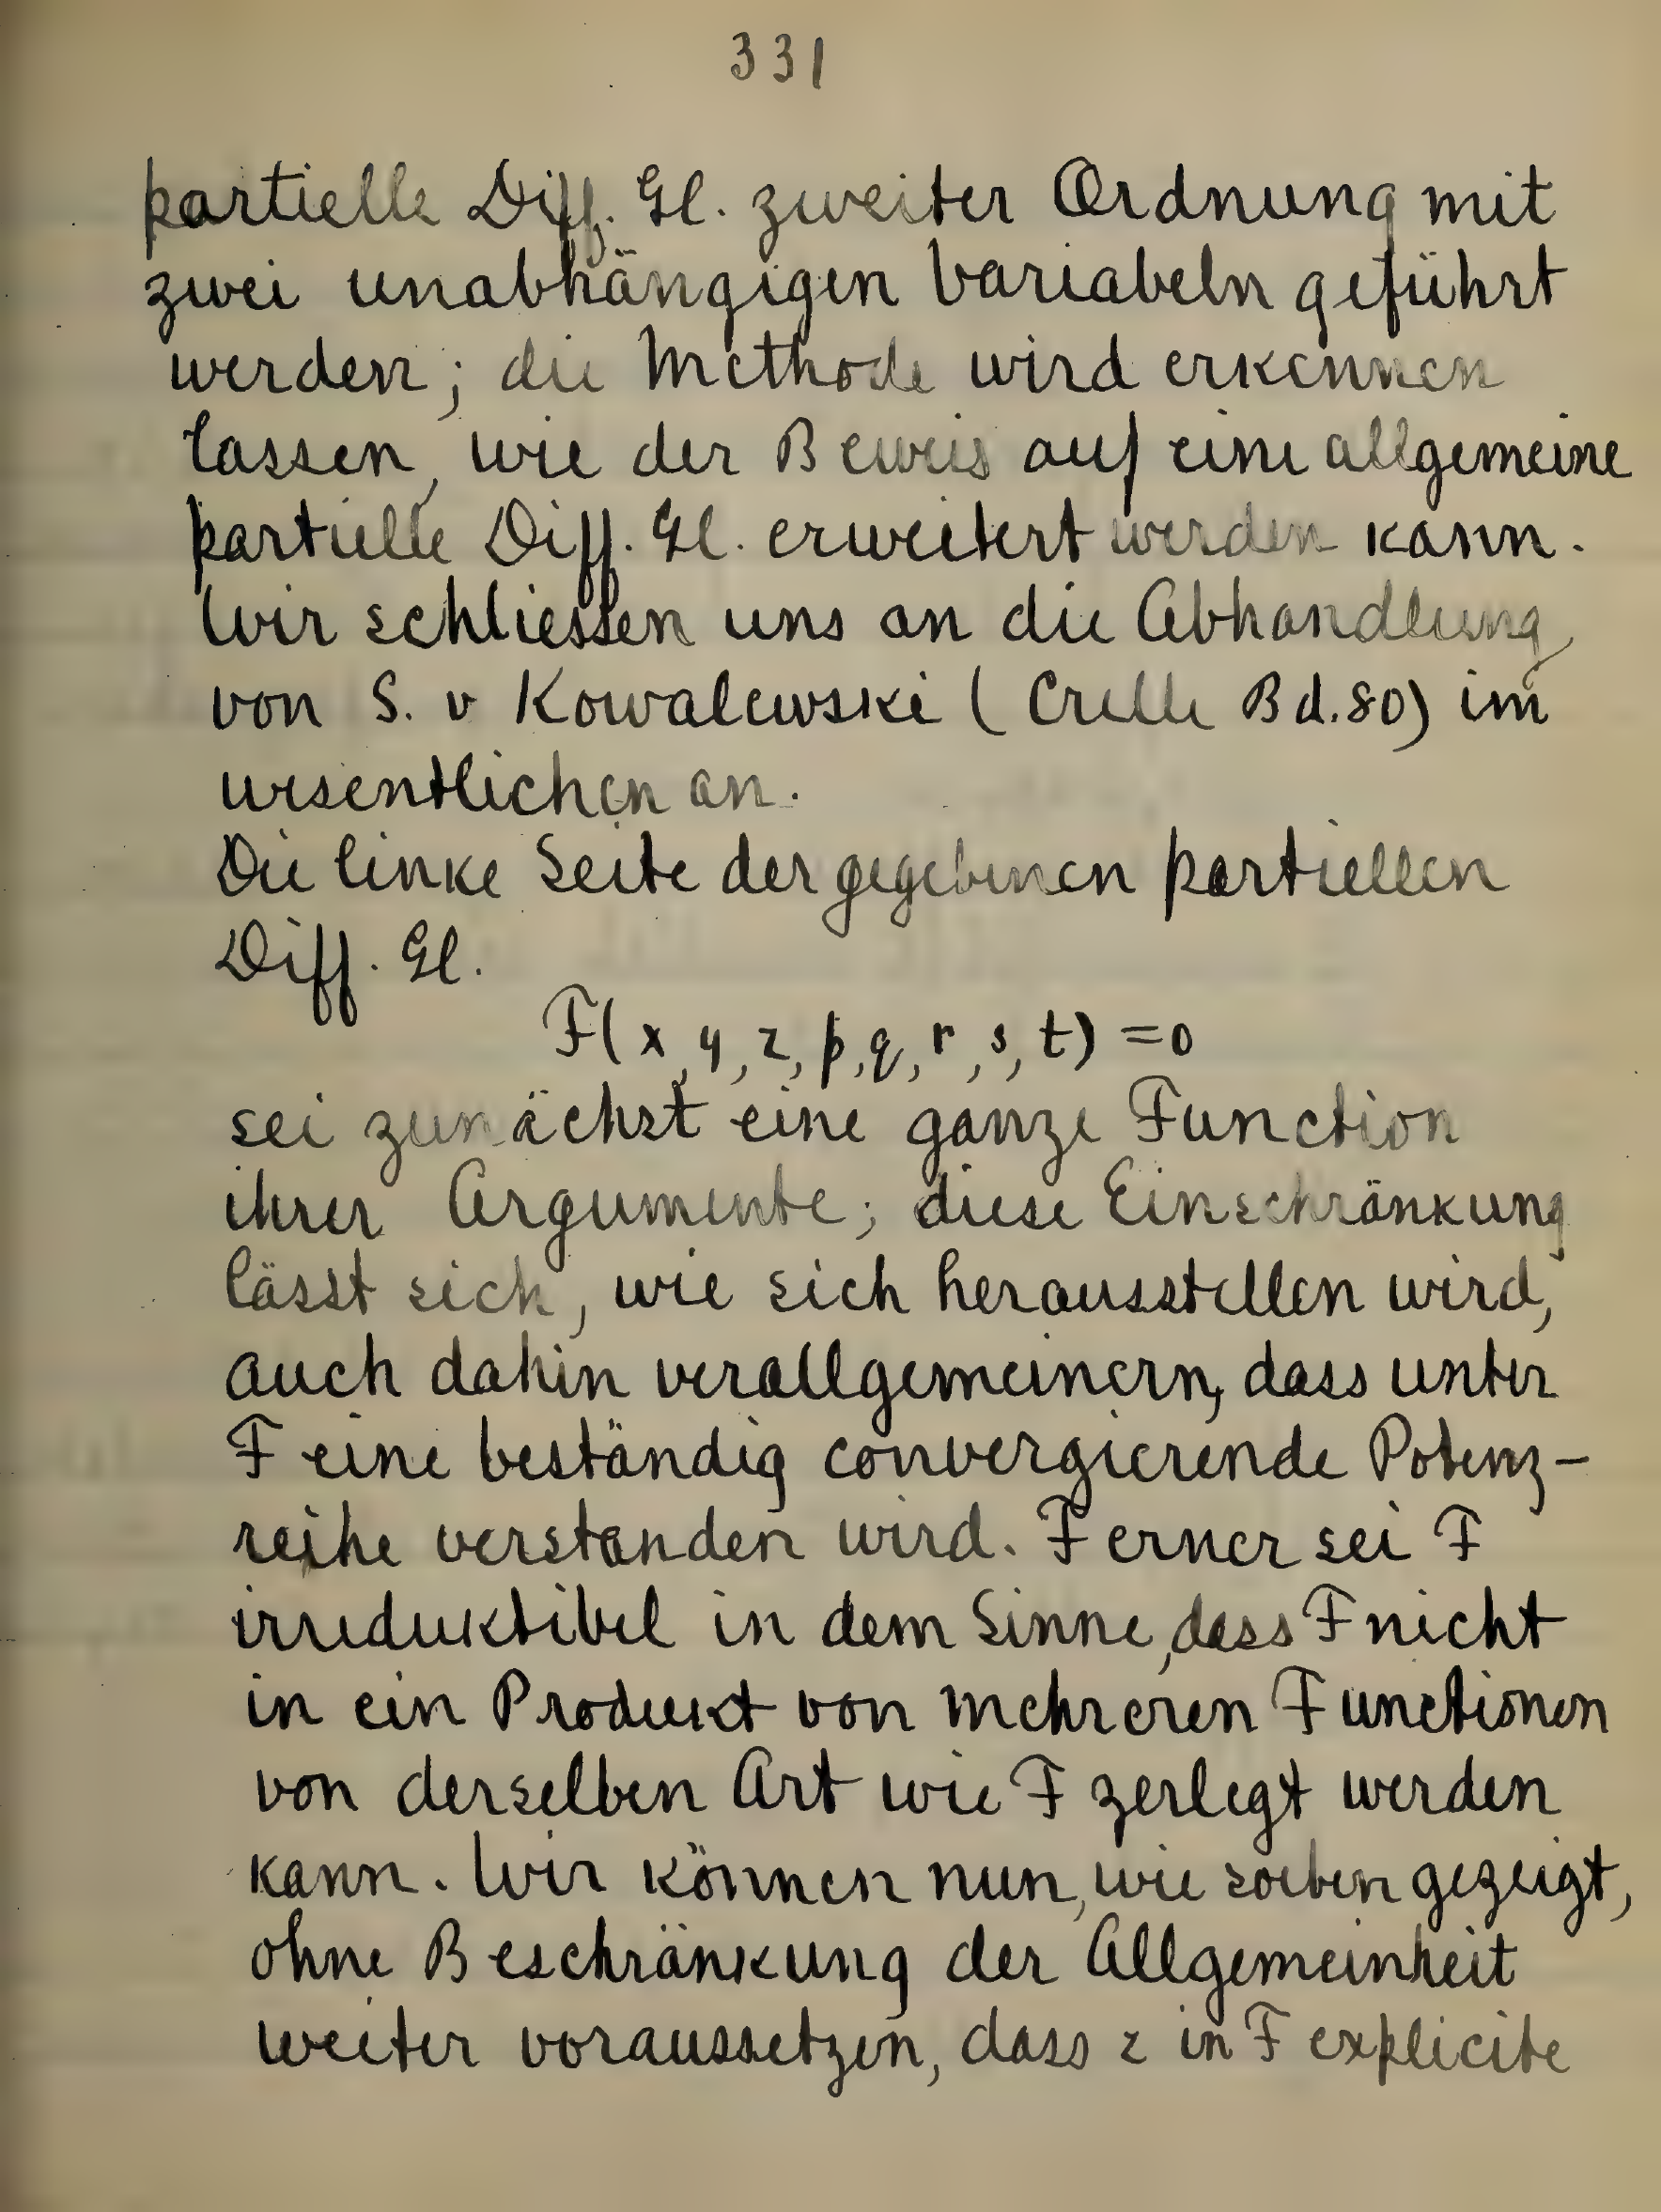 331
partielle Diff. Gl. zweiter Ordnung mit
zwei unabhängigen Variabeln geführt
werden; die Methode wird erkennen
lassen, wie der Beweis auf eine allgemeine
partielle Diff. Gl. erweitert werden kann.
Wir schliessen uns an die Abhandlung
von S. v Kowalewski (Crelle Bd. 80) im
wesentlichen an.
Die linke Seite der gegebenen partiellen
Diff. Gl.
F(x, y, z, p, q, r, s, t) = 0
sei zunächst eine ganze Function
ihrer Argumente; diese Einschränkung
lässt sich, wie sich herausstellen wird,
auch dahin verallgemeinern, dass unter
F eine beständig convergierende Potenz-
reihe verstanden wird. Ferner sei F
irreduktibel in dem Sinne, dass F nicht
in ein Produkt von mehreren Functionen
von derselben Art wie F zerlegt werden
kann. Wir können nun, wie soeben gezeigt,
ohne Beschränkung der Allgemeinheit
weiter voraussetzen, dass z in F explicite